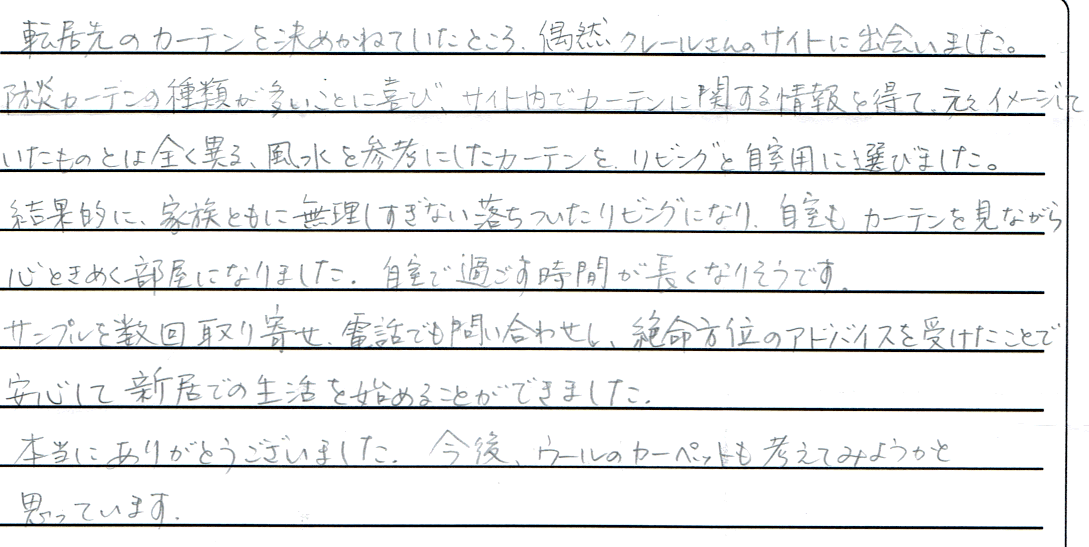 転居先のカーテンを決めかねていたところ、偶然クレールさんのサイトに出会いました。
防炎カーテンの種類が多いことに喜び、サイト内でカーテンに関する情報を得て、元々イメージして
いたものとは全く異る、風水を参考にしたカーテンを、リビングと自室用に選びました。
結果的に、家族ともに無理しすぎない落ちついたリビングになり、自室もカーテンを見ながら
心ときめく部屋になりました。自室で過ごす時間が長くなりそうです。
サンプルを数回取り寄せ、電話でも問い合わせし、絶命方位のアドバイスを受けたことで
安心して新居での生活を始めることができました。
本当にありがとうございました。今後、ウールのカーペットも考えてみようかと
思っています。